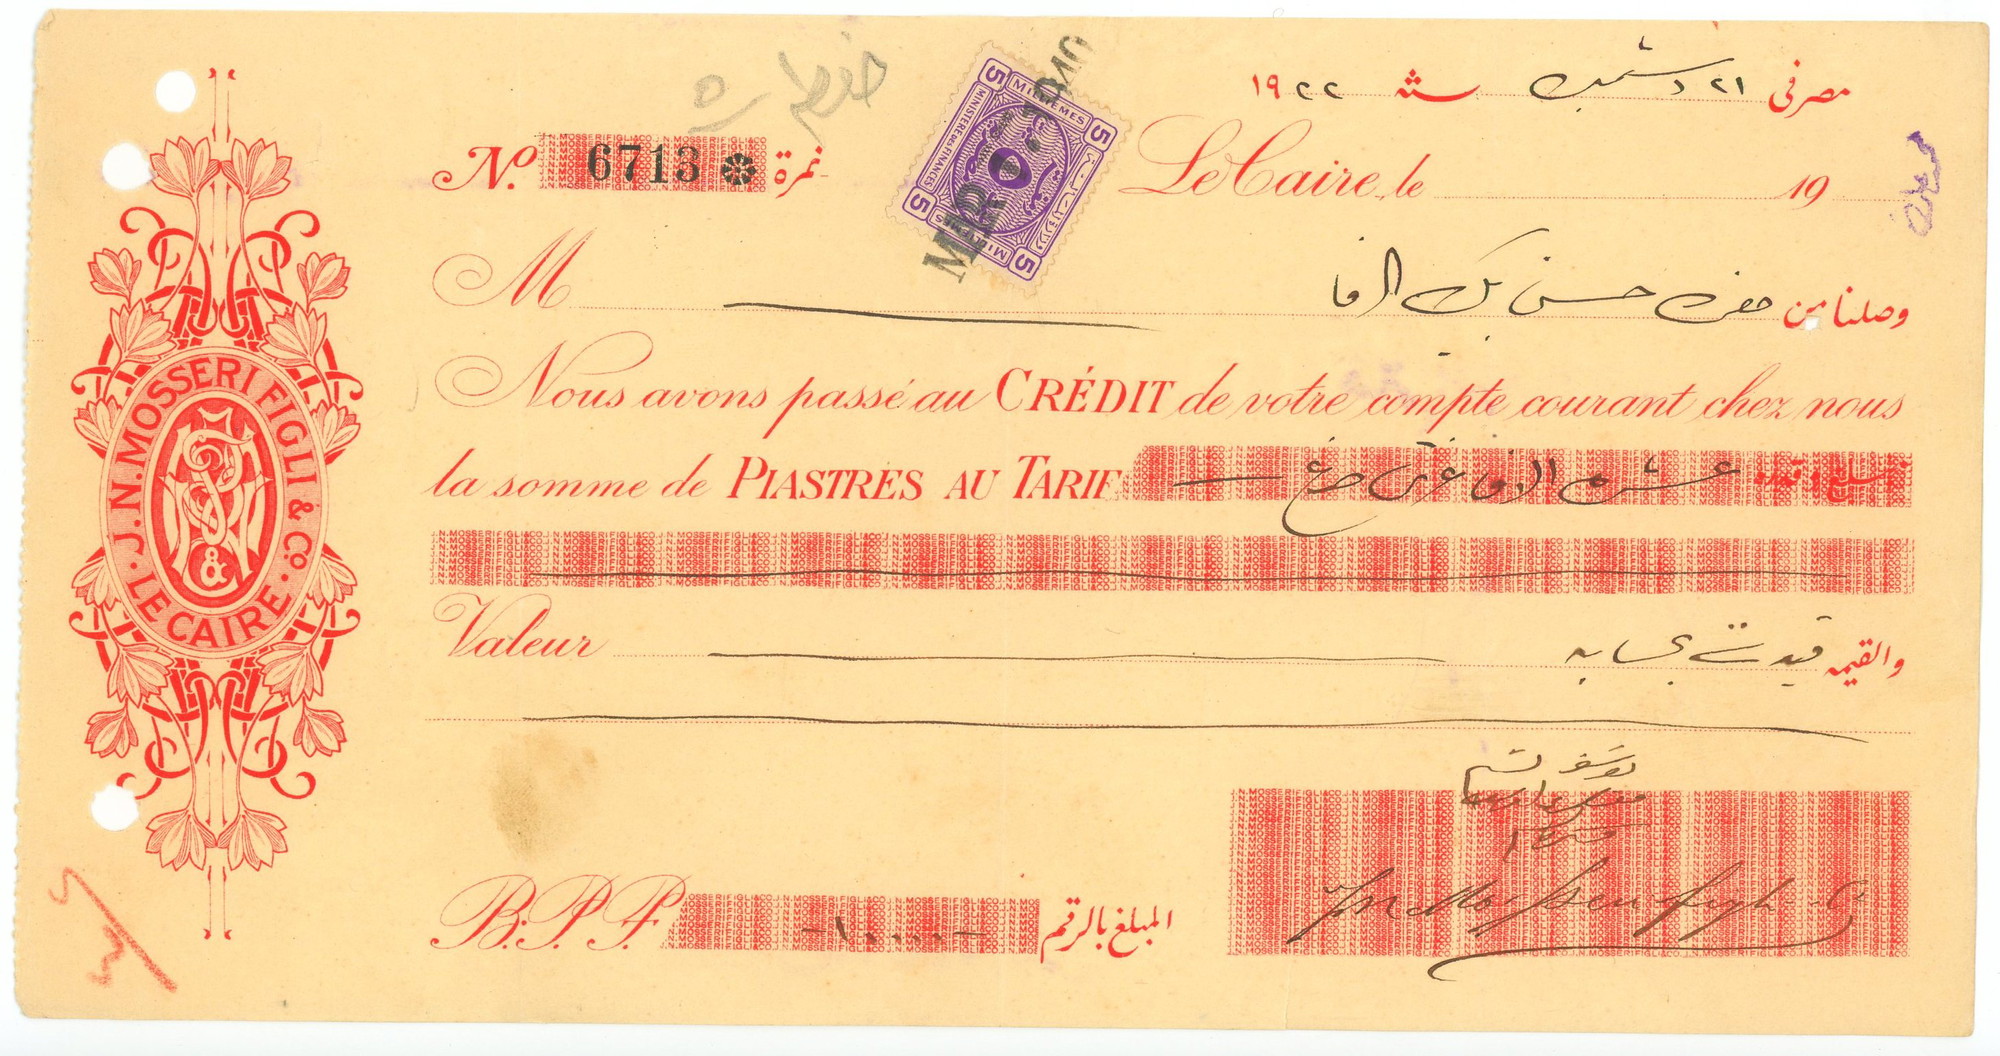 مصر في ٢١ دسمبر سنة ١٩٢٢
No. 6713 نمرة
Le Caire, le 19
5 MILLIEMES 5
MINISTERE DES FINANCES
5 MILLIEMES 5
M
وصلنا من حضرة حسن بك
Nous avons passé au CRÉDIT de votre compte courant chez nous
la somme de PIASTRES AU TARIF
مبلغ وقدره عشرة الاف غرش صاغ
Valeur
والقيمه قيدت بحسابه
J.N. MOSSERI FIGLI & Co.
LE CAIRE
B.P.P.T.
المبلغ بالرقم -١٠٠٠٠-
JN Mosseri figli & C